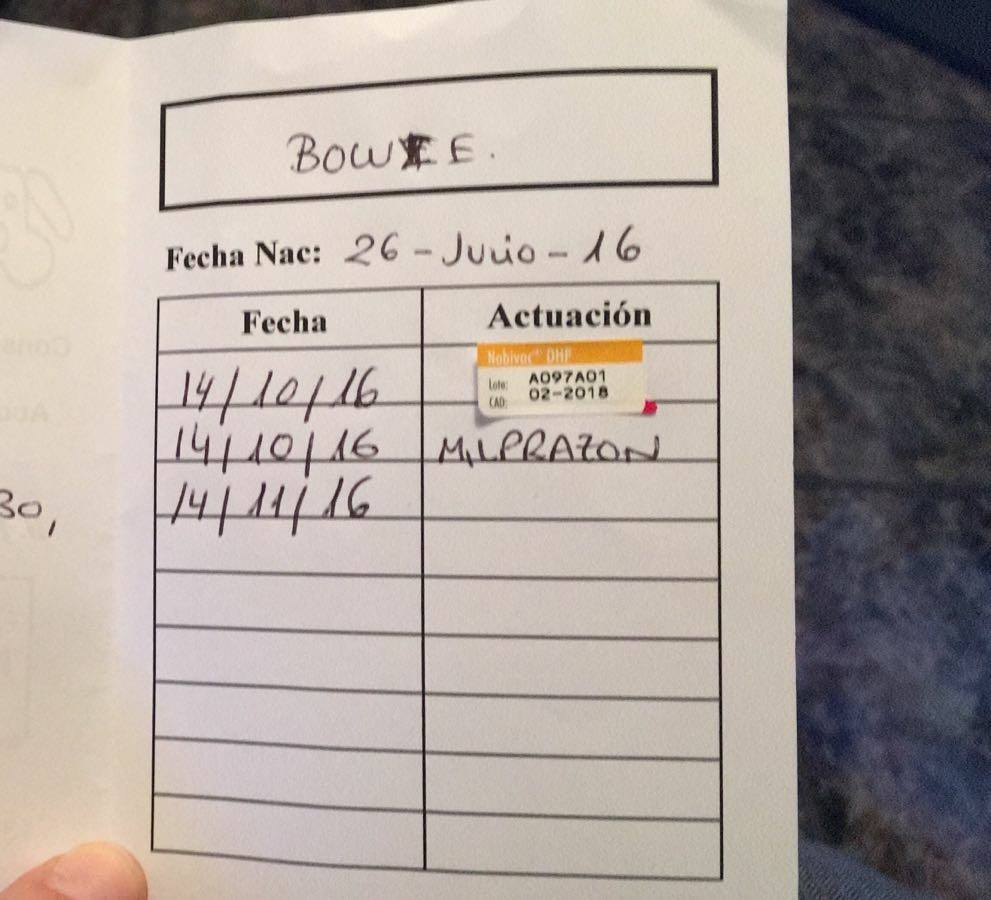 BOWIE.
Fecha Nac: 26-Julio-16
Fecha Actuación
14/10/16 Nobivac® DHP
Lote: A097A01
CAD: 02-2018
14/10/16 MILPRAZON
14/11/16
30,